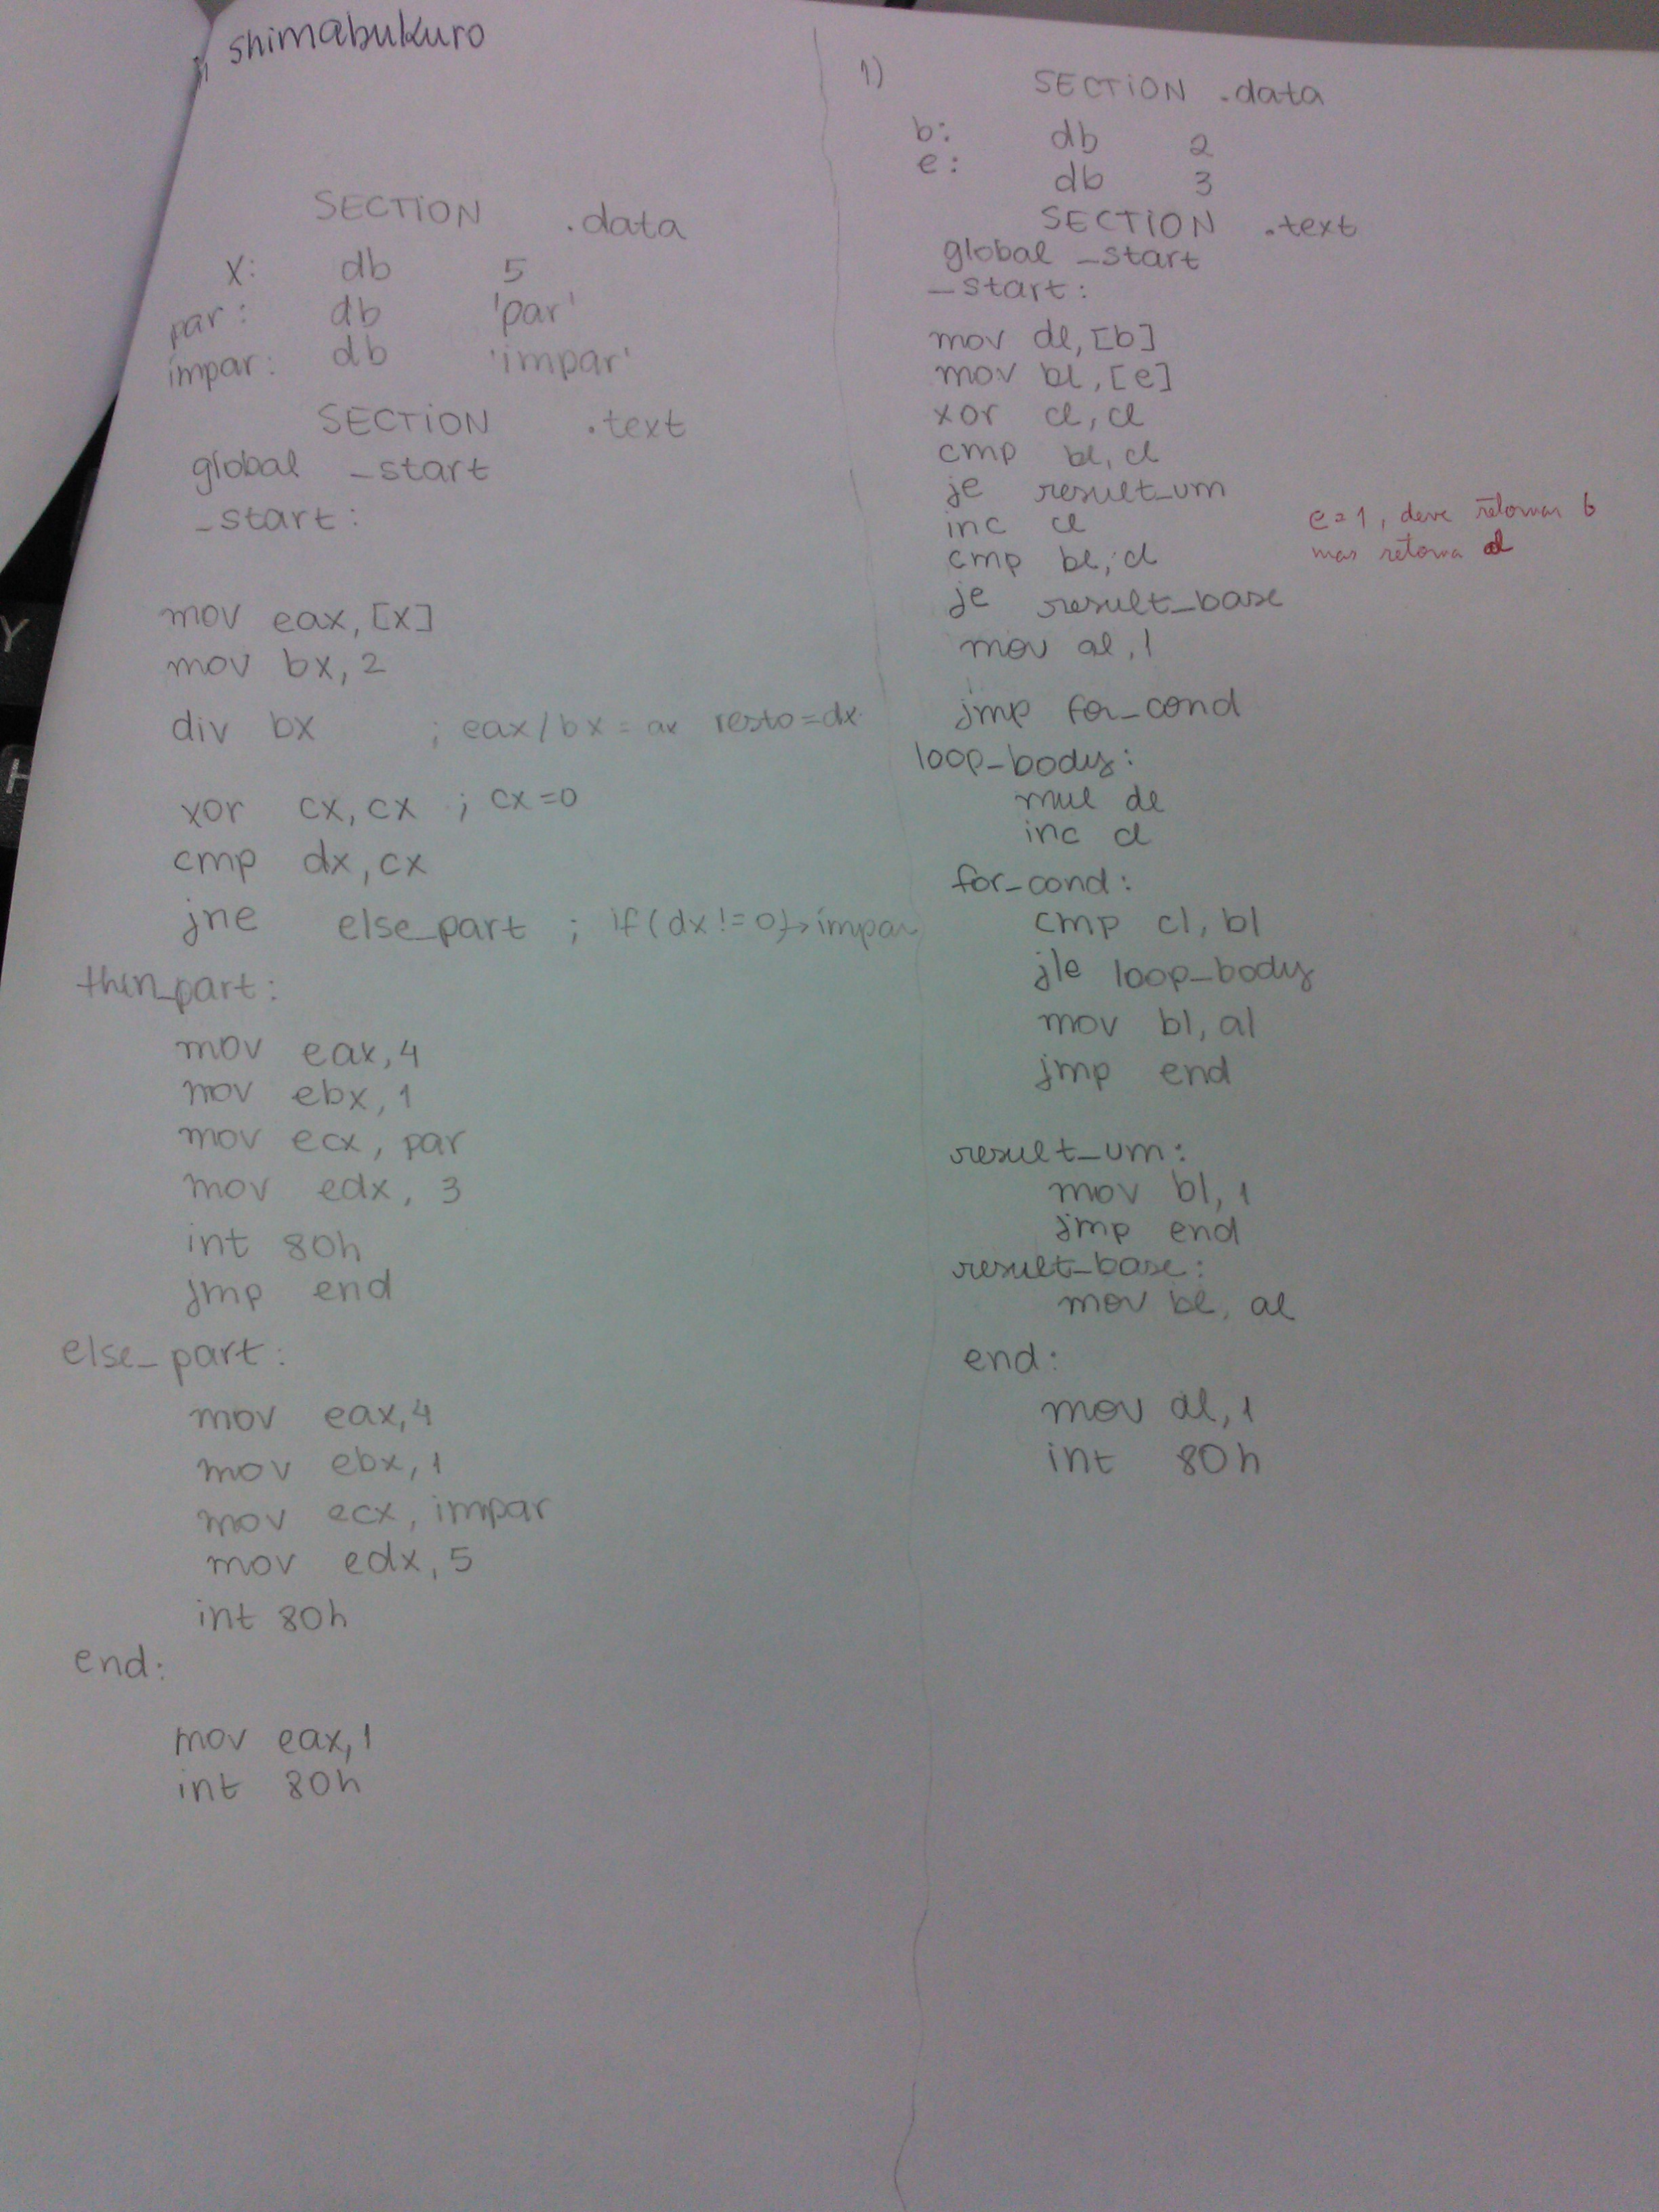 shimabukuro
SECTION .data
x: db 5
par: db 'par'
impar: db 'impar'
SECTION .text
global _start
_start:
mov eax, [x]
mov bx, 2
div bx ; eax/bx = ax resto=dx
xor cx, cx ; cx=0
cmp dx, cx
jne else_part ; if(dx!=0)→impar
then_part:
mov eax, 4
mov ebx, 1
mov ecx, par
mov edx, 3
int 80h
jmp end
else_part:
mov eax, 4
mov ebx, 1
mov ecx, impar
mov edx, 5
int 80h
end:
mov eax, 1
int 80h
1)
SECTION .data
b: db 2
e: db 3
SECTION .text
global _start
_start:
mov dl, [b]
mov bl, [e]
xor cl, cl
cmp bl, cl
je result_um
inc cl
cmp bl, cl
je result_base
mov al, 1
jmp for_cond
loop_body:
mul dl
inc cl
for_cond:
cmp cl, bl
jle loop_body
mov bl, al
jmp end
result_um:
mov bl, 1
jmp end
result_base:
mov bl, al
end:
mov al, 1
int 80h
e=1, deve retornar b
mas retorna al